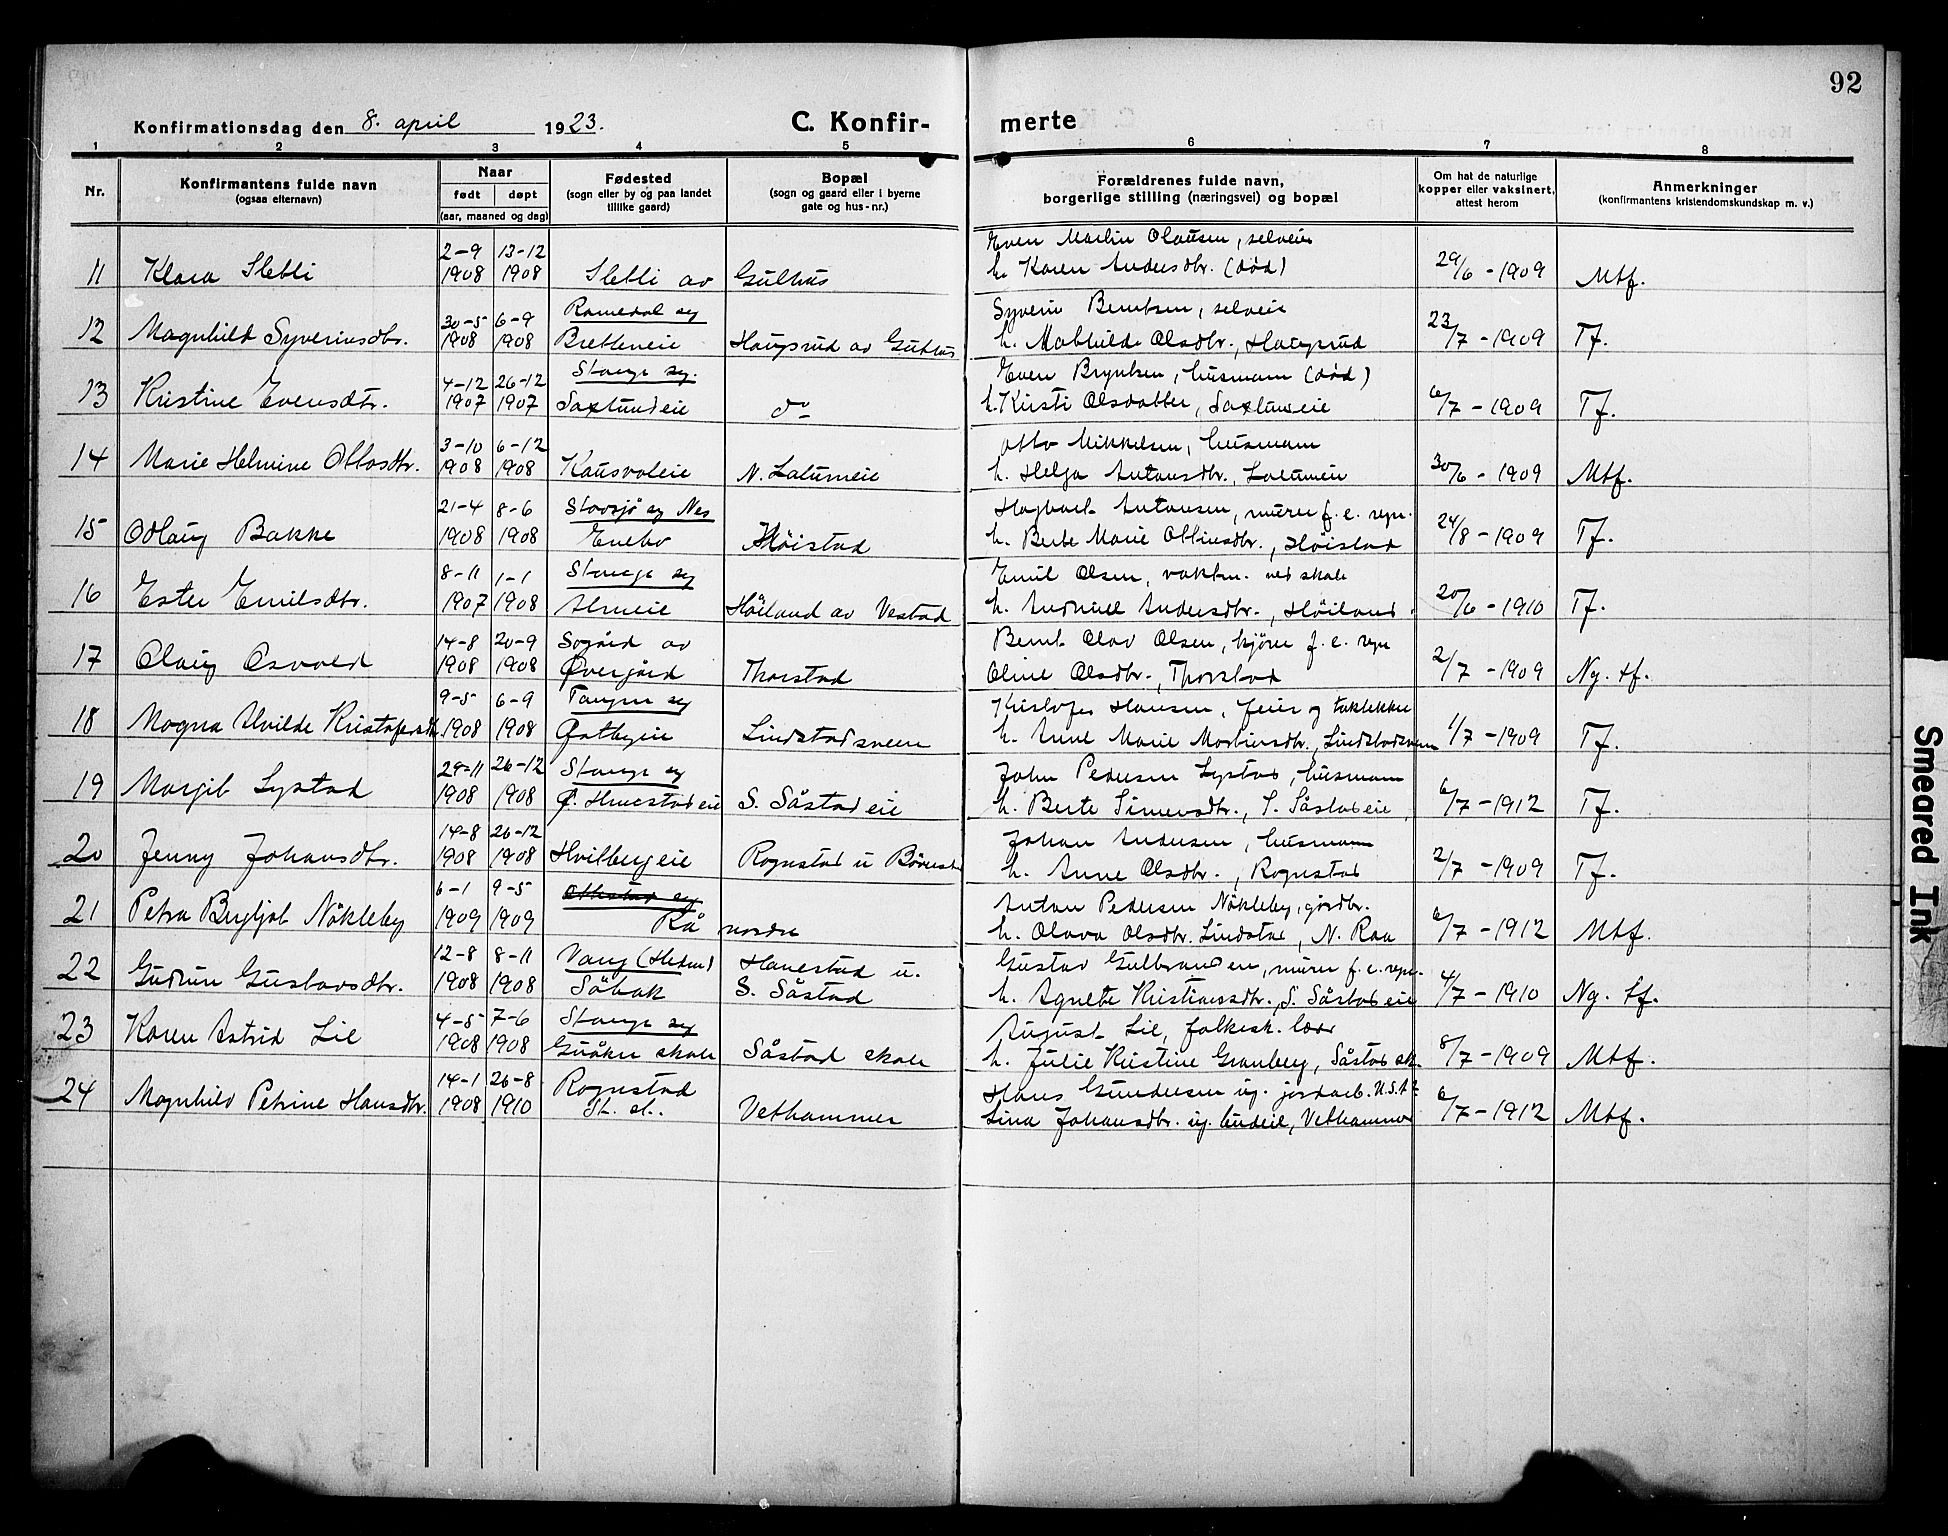 92
Konfirmationsdag den 8. april 1923. C. Konfir- merte
1 2 3 4 5 6 7 8
Nr. Konfirmantens fulde navn (ogsaa efternavn) Naar født døpt (aar, maaned og dag) Fødested (sogn eller by og paa landet tillike gaard) Bopæl (sogn og gaard eller i byerne gate og hus-nr.) Forældrenes fulde navn, borgerlige stilling (næringsvei) og bopæl Om hat de naturlige kopper eller vaksinert, attest herom Anmerkninger (konfirmantens kristendomskundskap m. v.)
2-9 13-12 Even Martin Olausen, selveier
11 Klara Sletli 1908 1908 Sletli av Gulhus h. Karen Andersdtr. (død) 29/6 - 1909 Mtf.
30-5 6-9 Romedal sg Syverin Berntsen, selveier
12 Magnhild Syverinsdtr. 1908 1908 Bretteneie Haugsrud av Gulhus h. Mathilde Olsdtr., Haugsrud 23/7 - 1909 Tf.
4-12 26-12 Stange sg. Even Bryntsen, husmann (død)
13 Kristine Evensdtr. 1907 1907 Saxlundeie do h. Kirsti Olsdatter, Saxlundeie 6/7 - 1909 Tf.
3-10 6-12 Otto Mikkelsen, husmann
14 Marie Helmine Ottosdtr. 1908 1908 Kausvoleie N. Lalumeie h. Helga Antonsdtr., Lalumeie 30/6 - 1909 Mtf.
21-4 8-6 Stavsjø sg Nes Hagbart Antonsen, murer f. e. regn.
15 Odlaug Bakke 1908 1908 Enebo Høistad h. Berte Marie Ottinsdtr., Høistad 24/8 - 1909 Tf.
8-11 1-1 Stange sg Emil Olsen, vaktm. ved skole
16 Ester Emilsdtr. 1907 1908 Almeie Høiland av Vestad h. Andersdtr., Høiland 20/6 - 1910 Tf.
14-8 20-9 Sogård av Bernt Olav Olsen, kjører f. e. regn
17 Olaug Osvold 1908 1908 Øvergård Thorstad Oline Olsdtr., Thorstad 2/7 - 1909 Ng. tf.
9-5 6-9 Tangen sg Kristofer Hansen, feier og taktekker
18 Magna Alvilde Kristofersdtr. 1908 1908 Østbyeie Lindstadsveen h. Anne Marie Martinsdtr., Lindstadsveen 1/7 - 1909 Tf.
29-11 26-12 Stange sg John Pedersen Lystad, husmann
19 Margit Lystad 1908 1908 Ø. Hverstadeie S. Såstadeie h. Berte Simensdtr., S. Såstadeie 6/7 - 1912 Tf.
14-8 26-12 Johan Andersen, husmann
20 Jenny Johansdtr. 1908 1908 Hvilbergeie Rognstad u Børrest h. Anne Olsdtr., Rognstad 2/7 - 1909 Tf.
6-1 9-5 Ottestad sg Anton Pedersen Nökleby, gårdbr.
21 Petra Bergljot Nökleby 1909 1909 Rå nordre h. Olava Olsdtr. Lindstad, N. Raa 6/7 - 1912 Mtf.
12-8 8-11 Vang (Hedm) Hanestad u. Gustav Gulbrandsen, murer f. e. regn.
22 Gudrun Gustavsdtr. 1908 1908 Såbak S. Såstad h. Agnete Kristiansdtr., S. Såstadeie 4/7 - 1910 Ng. tf.
4-5 7-6 Stange sg August Lie, folkesk. lærer
23 Karen Astrid Lie 1908 1908 Guåker skole Såstad skole h. Julie Kristine Granberg, Såstad sk. 8/7 - 1909 Mtf.
14-1 26-8 Rognstad Hans Gundersen ug. jordarb. U.S.A?
24 Magnhild Petrine Hansdtr. 1908 1910 Vethammer Lina Johansdtr. ug. budeie, Vethammer 6/7 - 1912 Mtf.
Smeared Ink